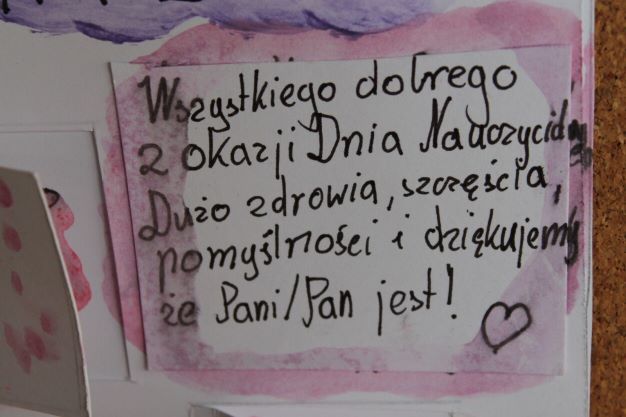 Wszystkiego dobrego
z okazji Dnia Nauczyciela
Dużo zdrowia, szczęścia,
pomyślności i dziękujemy
że Pani/Pan jest!